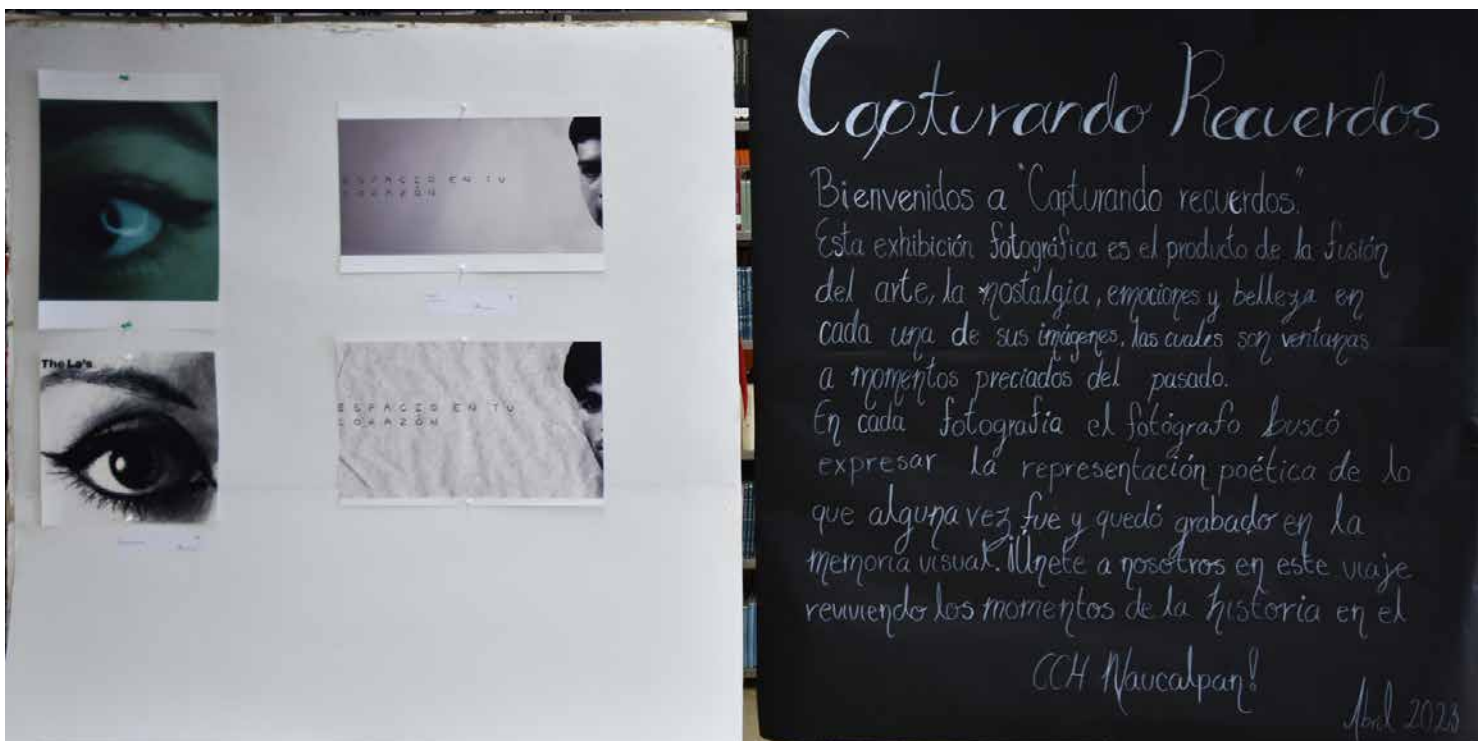 The La's
ESPACIO EN TU
CORAZÓN
ESPACIO EN TU
CORAZÓN
Capturando Recuerdos
Bienvenidos a "Capturando recuerdos".
Esta exhibición fotográfica es el producto de la fusión
del arte, la nostalgia, emociones y belleza en
cada una de sus imágenes, las cuales son ventanas
a momentos preciados del pasado.
En cada fotografía el fotógrafo buscó
expresar la representación poética de lo
que alguna vez fue y quedó grabado en la
memoria visual. ¡Únete a nosotros en este viaje
reviviendo los momentos de la historia en el
CCH Naucalpan!
Abril 2023